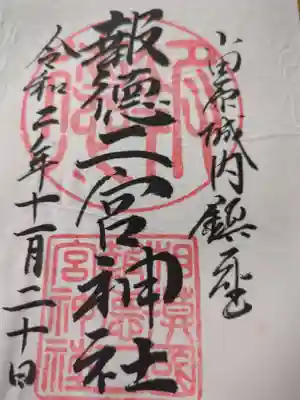 小田原城内鎮座
報徳二宮神社
令和二年十一月二十日
相模国
報徳二
宮神社